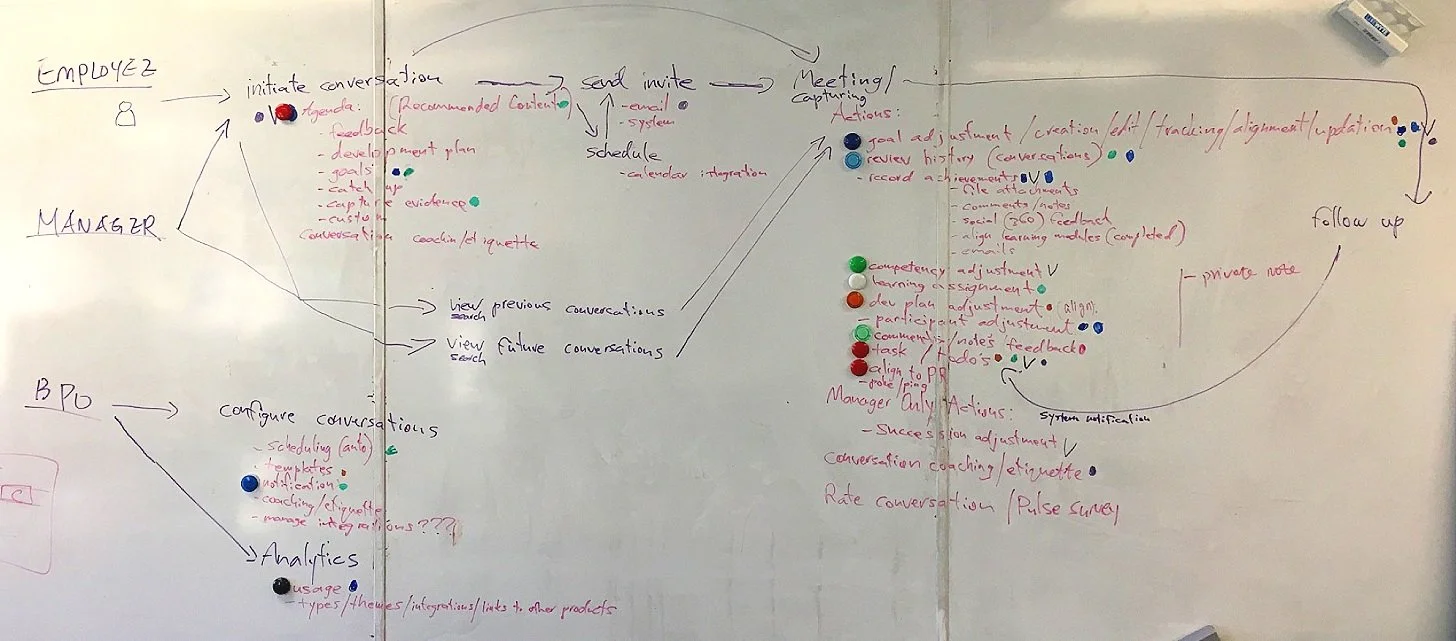 EMPLOYEE
initiate conversation
send invite
Meeting/
capturing
Agenda: (Recommended Content)
- feedback
- development plan
- goals
- catch up
- capture evidence
- custom
Conversation coachin/etiquette
- email
- system
schedule
- calendar integration
Actions:
goal adjustment / creation / edit / tracking / alignment / updation
review history (conversations)
- record achievements
- file attachments
- comments/notes
- social (360) feedback
- align learning modules (completed)
- emails
follow up
- private note
MANAGER
view previous conversations
search
view future conversations
search
competency adjustment
learning assignment
dev plan adjustment (align)
- participant adjustment
comments/notes feedback
task / todo's
align to PR
- poke/ping
System notification
Manager Only Actions:
- Succession adjustment
Conversation coaching/etiquette
Rate conversation / Pulse survey
BPO
configure conversations
- scheduling (auto)
- templates
notification
- coaching/etiquette
- manage integrations???
C
Analytics
usage
- types/themes/integrations/links to other products